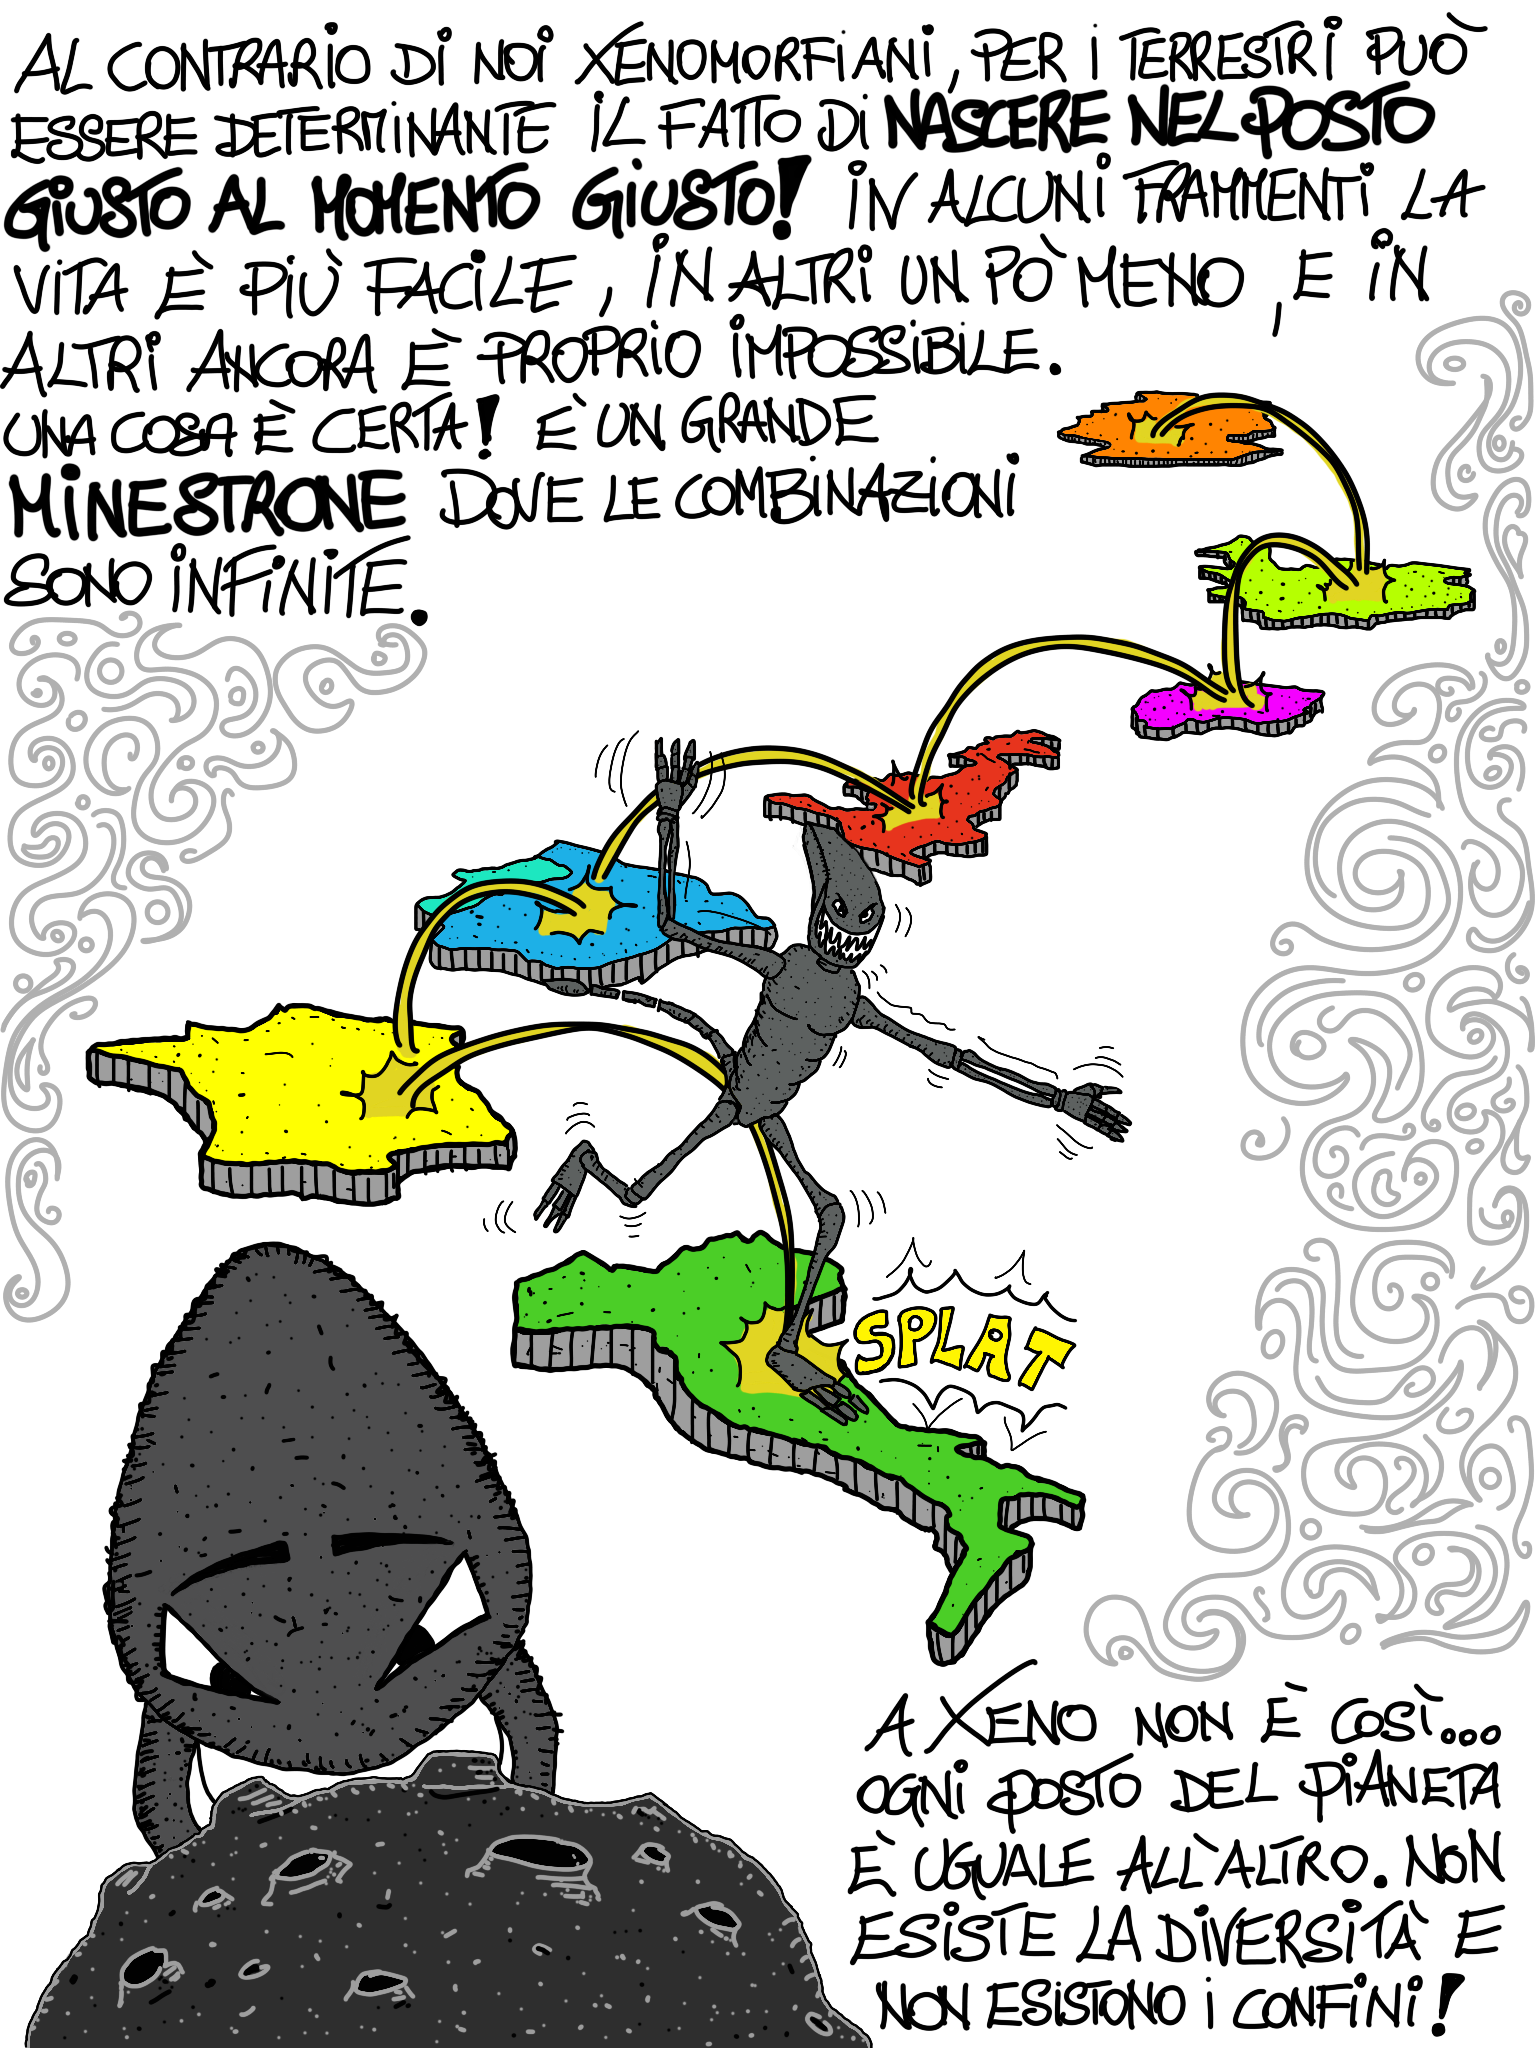 AL CONTRARIO DI NOI XENOMORFIANI, PER I TERRESTRI PUÒ
ESSERE DETERMINANTE IL FATTO DI NASCERE NEL POSTO
GIUSTO AL MOMENTO GIUSTO! IN ALCUNI FRAMMENTI LA
VITA È PIÙ FACILE, IN ALTRI UN PÒ MENO, E IN
ALTRI ANCORA È PROPRIO IMPOSSIBILE.
UNA COSA È CERTA! È UN GRANDE
MINESTRONE DOVE LE COMBINAZIONI
SONO INFINITE.
SPLAT
A XENO NON È COSÌ...
OGNI POSTO DEL PIANETA
È UGUALE ALL'ALTRO. NON
ESISTE LA DIVERSITÀ E
NON ESISTONO I CONFINI!